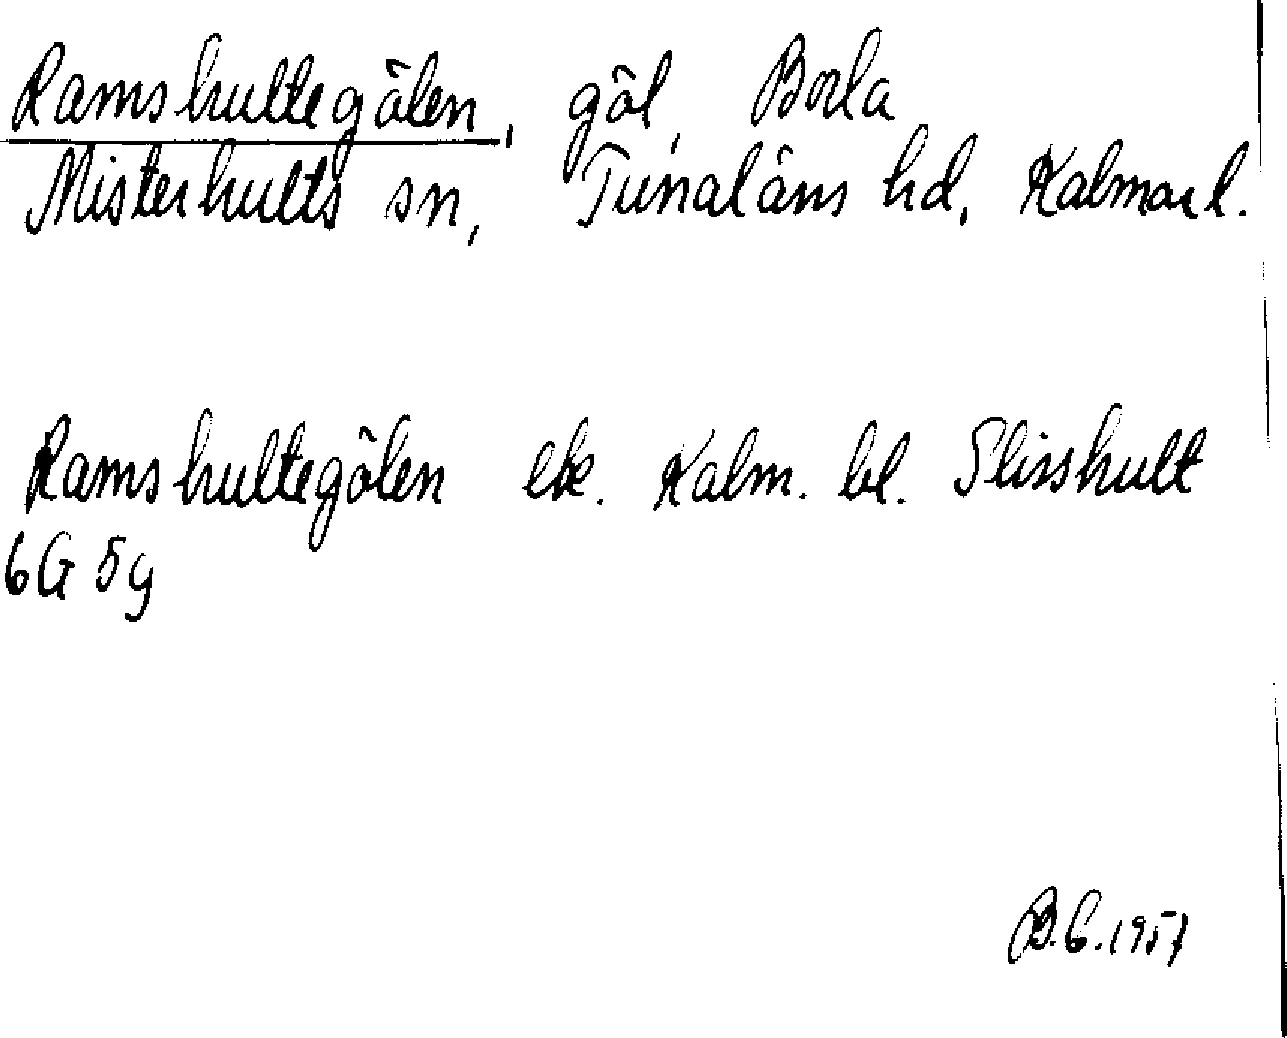 Ramshultegölen, göl, Borla
Misterhults sn, Tunaläns hd, Kalmar l.
Ramshultegölen ek. Kalm. bl. Slisshult
6G 5g
B.C. 1957